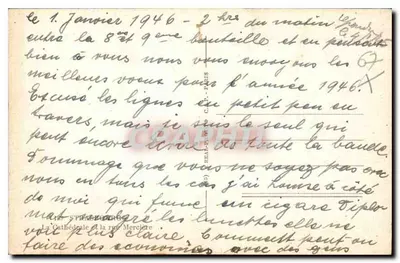 le 1. Janvier 1946 - 2 hrs du matin
entre la 8me et 9eme bouteille et en pensant
bien à vous nous vous envoyons les
meilleurs voeux pour l'année 1946.
Excusé les lignes un petit peu en
travers, mais je suis le seul qui
peut encore écrire de toute la bande.
Dommage que vous ne soyez pas avec
nous en tous les cas j'ai Louise à côté
de moi qui fume un cigare Diplo
mat, malgré les lunettes elle ne
La Cathédrale et la rue Mercière
voit plus claire. Comment peut on
faire des economies avec des gens